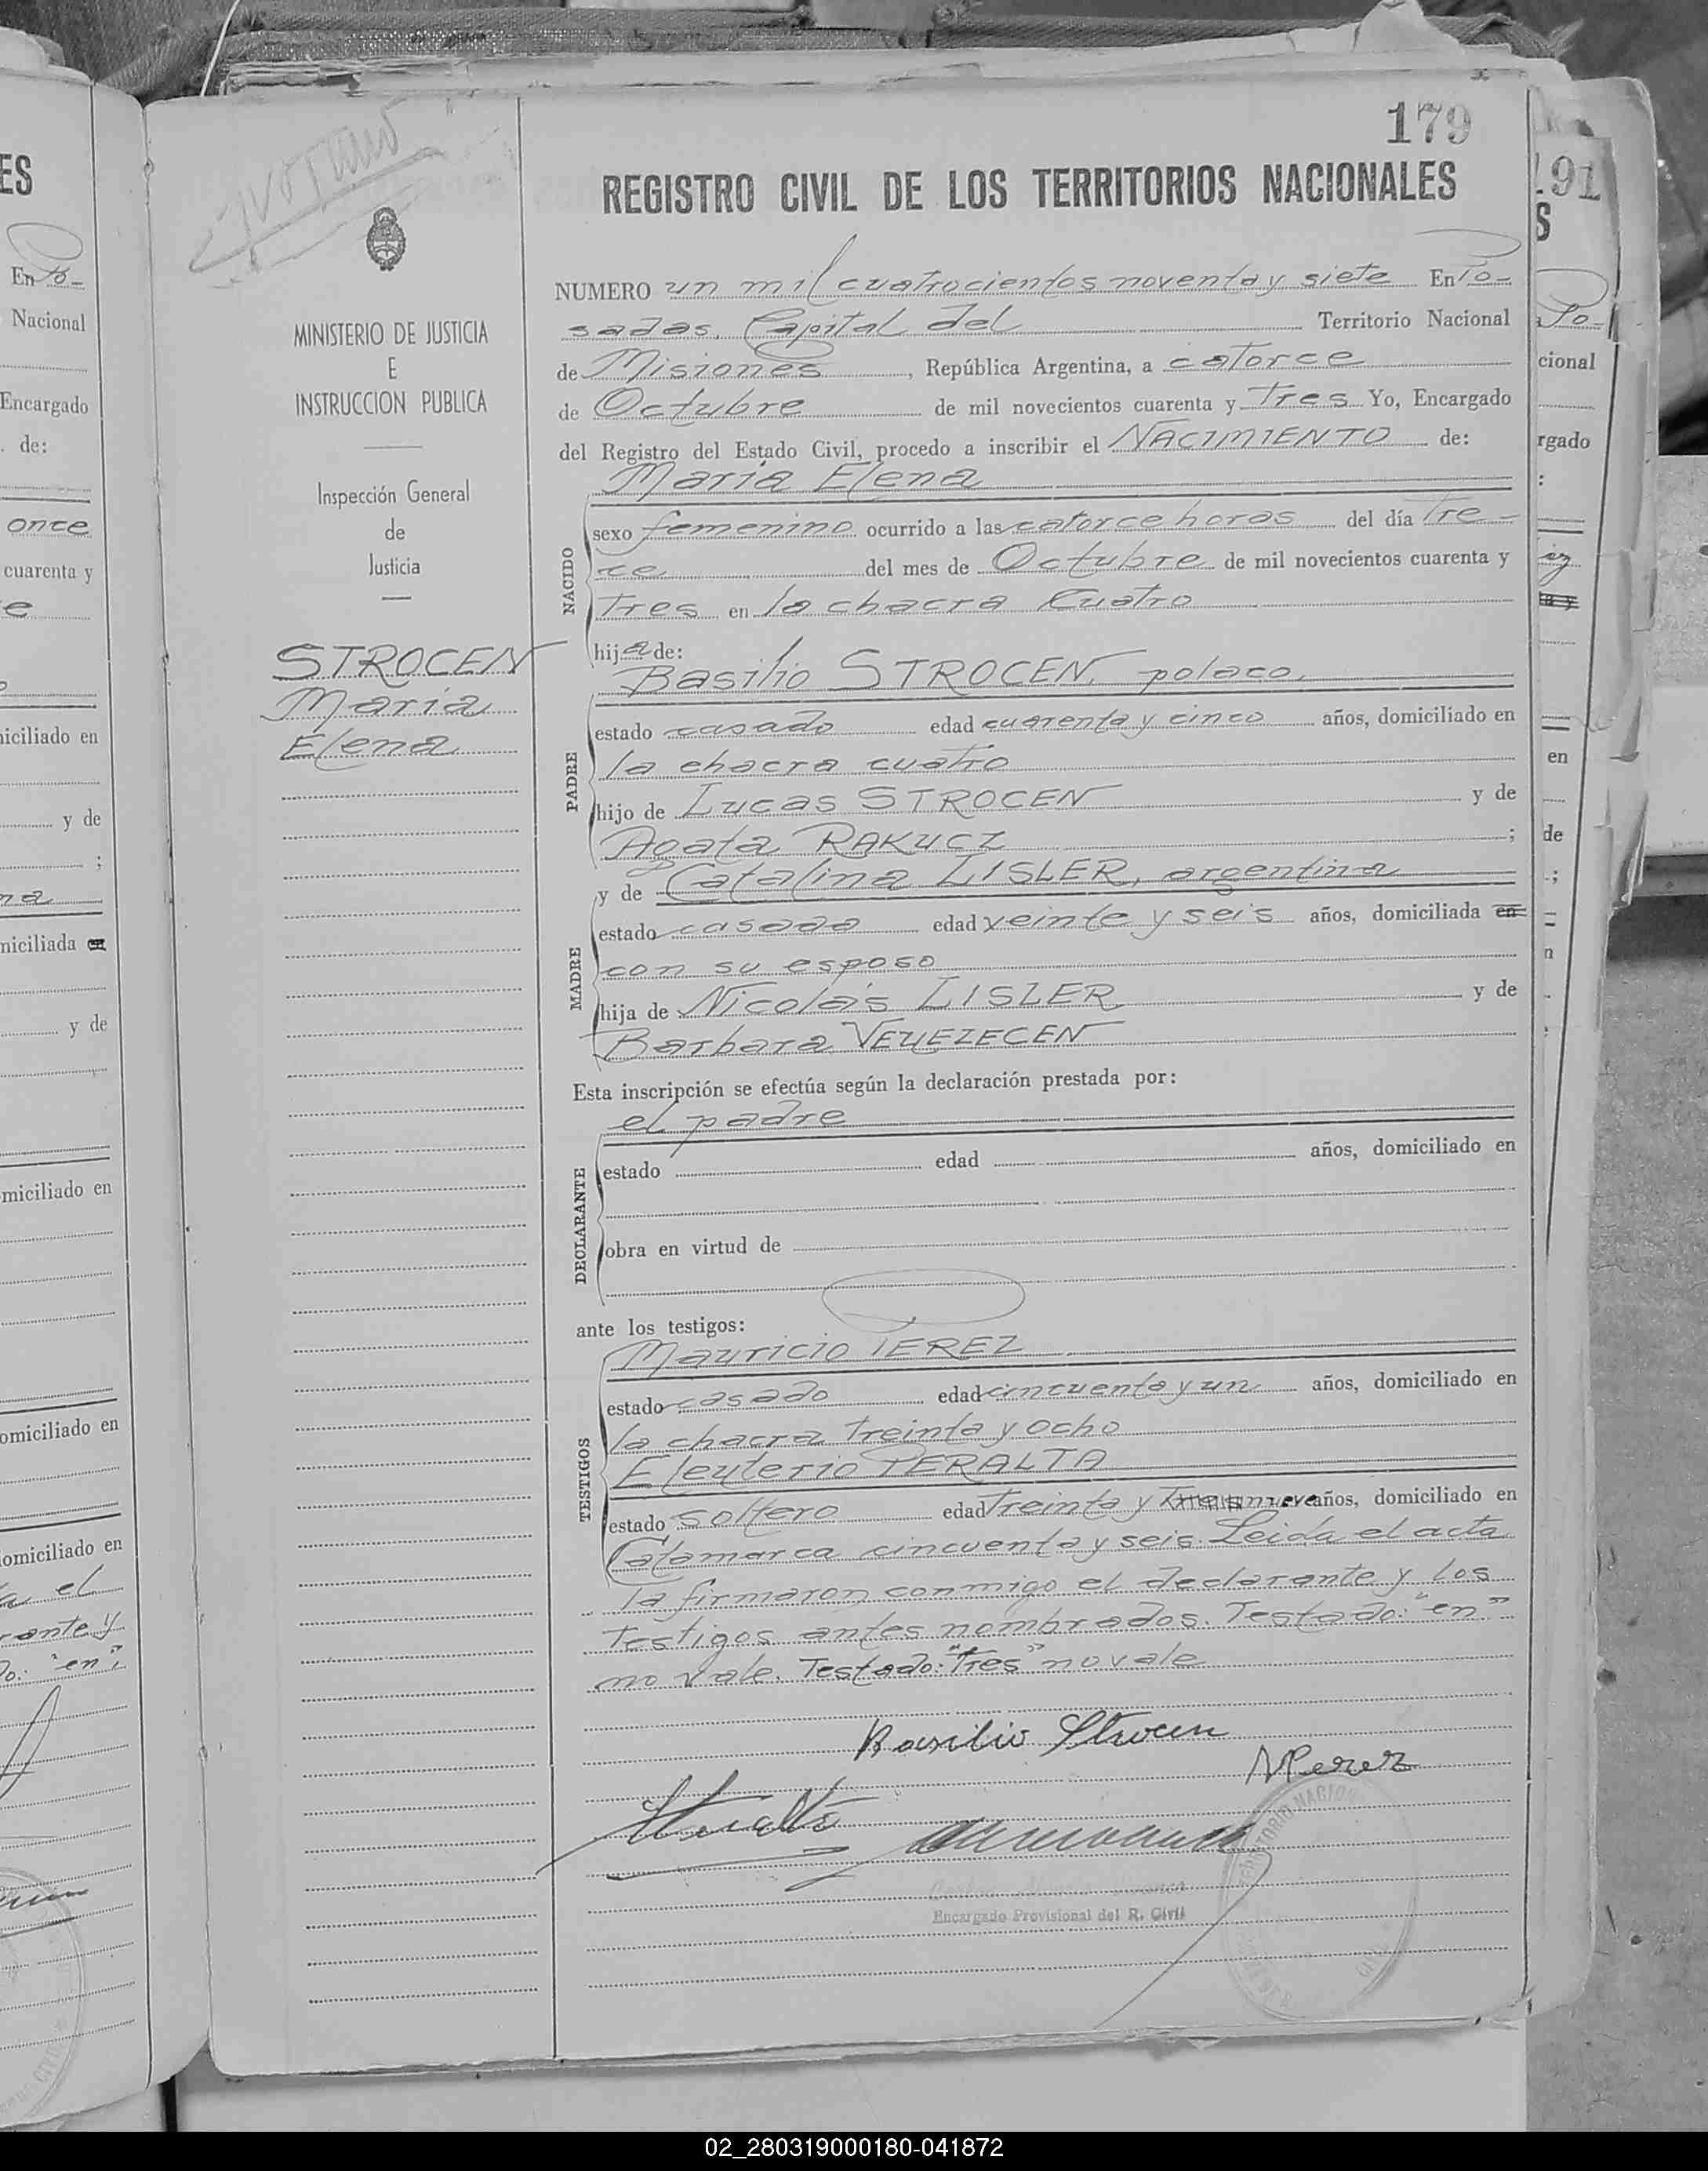 179
REGISTRO CIVIL DE LOS TERRITORIOS NACIONALES
MINISTERIO DE JUSTICIA
E
INSTRUCCION PUBLICA
Inspección General
de
Justicia
STROCEN
María
Elena
NUMERO un mil cuatrocientos noventa y siete En Po-
sadas, Capital del Territorio Nacional
de Misiones, República Argentina, a catorce
de Octubre de mil novecientos cuarenta y Tres Yo, Encargado
del Registro del Estado Civil, procedo a inscribir el NACIMIENTO de:
María Elena
NACIDO
sexo femenino ocurrido a las catorce horas del día Tre-
ce del mes de Octubre de mil novecientos cuarenta y
Tres en la chacra Cuatro
hija de:
Basilio STROCEN, polaco,
PADRE
estado casado edad cuarenta y cinco años, domiciliado en
la chacra cuatro
hijo de Lucas STROCEN y de
Agata RAKUCZ ;
y de Catalina LISLER, argentina
MADRE
estado casada edad veinte y seis años, domiciliada en
con su esposo
hija de Nicolás LISLER y de
Barbara
Esta inscripción se efectúa según la declaración prestada por:
el padre
DECLARANTE
estado edad años, domiciliado en
obra en virtud de
ante los testigos:
Mauricio PEREZ
TESTIGOS
estado casado edad cincuenta y un años, domiciliado en
la chacra Treinta y ocho
Eleuterio PERALTA
estado soltero edad Treinta y Tres nueve años, domiciliado en
Catamarca cincuenta y seis. Leida el acta
la firmaron conmigo el declarante y los
Testigos antes nombrados. Testado: "en"
no vale. Testado: "Tres" no vale
Basilio Strocen
MPerez
Encargado Provisional del R. Civil
ES
En Po-
Nacional
Encargado
de:
once
cuarenta y
miciliado en
y de
;
na
miciliada en
y de
omiciliado en
omiciliado en
domiciliado en
el
rante y
"en";
191
S
Po-
cional
rgado
:
en
de
;
02_280319000180-041872